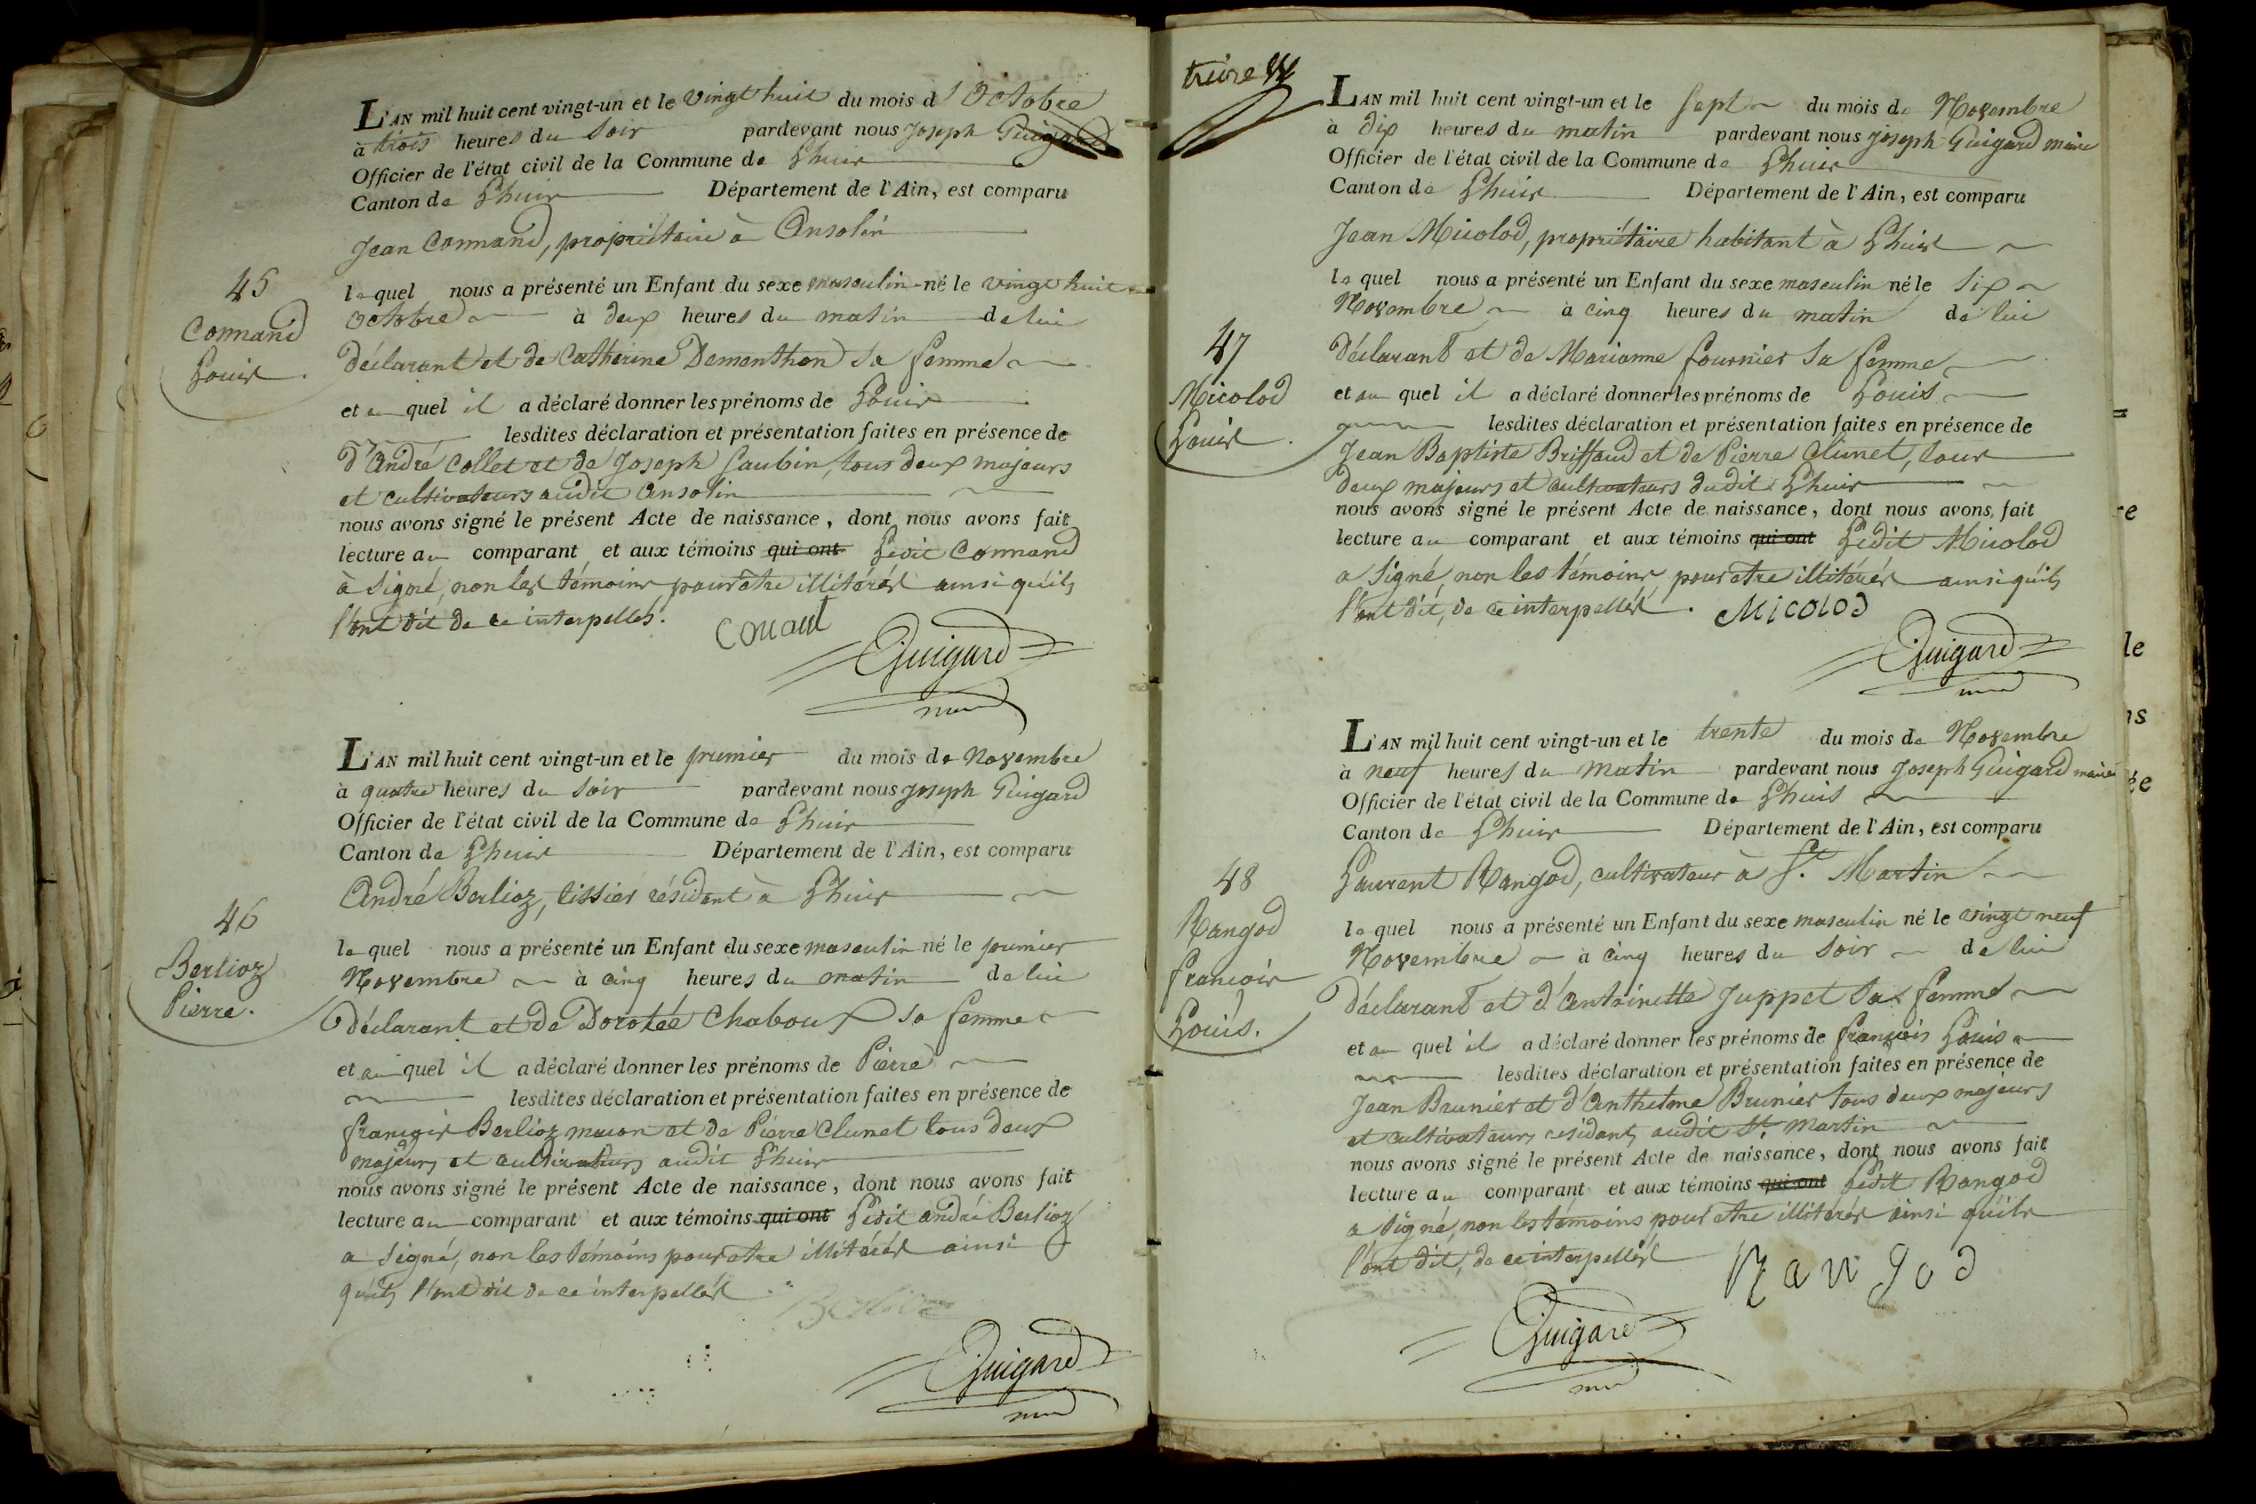 L'AN mil huit cent vingt-un et le vingt huit du mois d'Octobre
à trois heures du soir pardevant nous Joseph Guigard
Officier de l'état civil de la Commune de Lhuis
Canton de Lhuis Département de l'Ain, est comparu
Jean Connand, propriétaire à Ansolin
45
Connand
Louis.
le quel nous a présenté un Enfant du sexe masculin né le vingt huit
Octobre à deux heures du matin de lui
déclarant et de Catherine Dementhon sa femme
et au quel il a déclaré donner les prénoms de Louis
lesdites déclaration et présentation faites en présence de
d'André Collet et de Joseph Laubin, tous deux majeurs
et cultivateurs audit ansolin
nous avons signé le présent Acte de naissance, dont nous avons fait
lecture au comparant et aux témoins qui ont Ledit Connand
à signé, non les témoins, pour être illitérés ainsi qu'ils
l'ont dit de ce interpellés.
Conant
Guigard
L'AN mil huit cent vingt-un et le premier du mois de Novembre
à quatre heures du soir pardevant nous Joseph Guigard
Officier de l'état civil de la Commune de Lhuis
Canton de Lhuis Département de l'Ain, est comparu
André Berlioz, tissier résidant à Lhuis
46
Berlioz
Pierre.
le quel nous a présenté un Enfant du sexe masculin né le premier
Novembre à cinq heures du matin de lui
déclarant et de Dorotée Chaboux sa femme
et au quel il a déclaré donner les prénoms de Pierre
lesdites déclaration et présentation faites en présence de
françois Berlioz macon et de Pierre Clunet tous deux
majeurs et cultivateurs audit Lhuis
nous avons signé le présent Acte de naissance, dont nous avons fait
lecture au comparant et aux témoins qui ont Ledit andré Berlioz
a signé, non les témoins pour etre illitérés ainsi
qu'ils l'ont dit de ce interpellés
Berlioz
Guigard
treize
L'AN mil huit cent vingt-un et le sept du mois de Novembre
à dix heures du matin pardevant nous Joseph Guigard maire
Officier de l'état civil de la Commune de Lhuis
Canton de Lhuis Département de l'Ain, est comparu
Jean Micolod, propriétaire habitant à Lhuis
47
Micolod
Louis.
le quel nous a présenté un Enfant du sexe masculin né le six
Novembre à cinq heures du matin de lui
déclarant et de Marianne fournier sa femme
et au quel il a déclaré donner les prénoms de Louis
lesdites déclaration et présentation faites en présence de
Jean Baptiste Briffaud et de Pierre Clunet, tous
deux majeurs et cultivateurs dudit Lhuis
nous avons signé le présent Acte de naissance, dont nous avons fait
lecture au comparant et aux témoins qui ont Ledit Micolod
a signé, non les témoins pour etre illitérés ainsi qu'ils
l'ont dit, de ce interpellés.
Micolod
Guigard
L'AN mil huit cent vingt-un et le trente du mois de Novembre
à neuf heures du matin pardevant nous Joseph Guigard maire
Officier de l'état civil de la Commune de Lhuis
Canton de Lhuis Département de l'Ain, est comparu
Laurent Rangod, cultivateur à St. Martin
48
Rangod
francois
Louis.
le quel nous a présenté un Enfant du sexe masculin né le vingt neuf
Novembre à cinq heures du soir de lui
déclarant et d'antoinette Juppet sa femme
et au quel il a déclaré donner les prénoms de françois Louis
lesdites déclaration et présentation faites en présence de
Jean Brunier et d'Anthelme Brunier tous deux majeurs
et cultivateurs residants audit St. martin
nous avons signé le présent Acte de naissance, dont nous avons fait
lecture au comparant et aux témoins qui ont Ledit Rangod
a signé, non les témoins pour etre illitérés ainsi qu'ils
l'ont dit, de ce interpellés
Rangod
Guigard